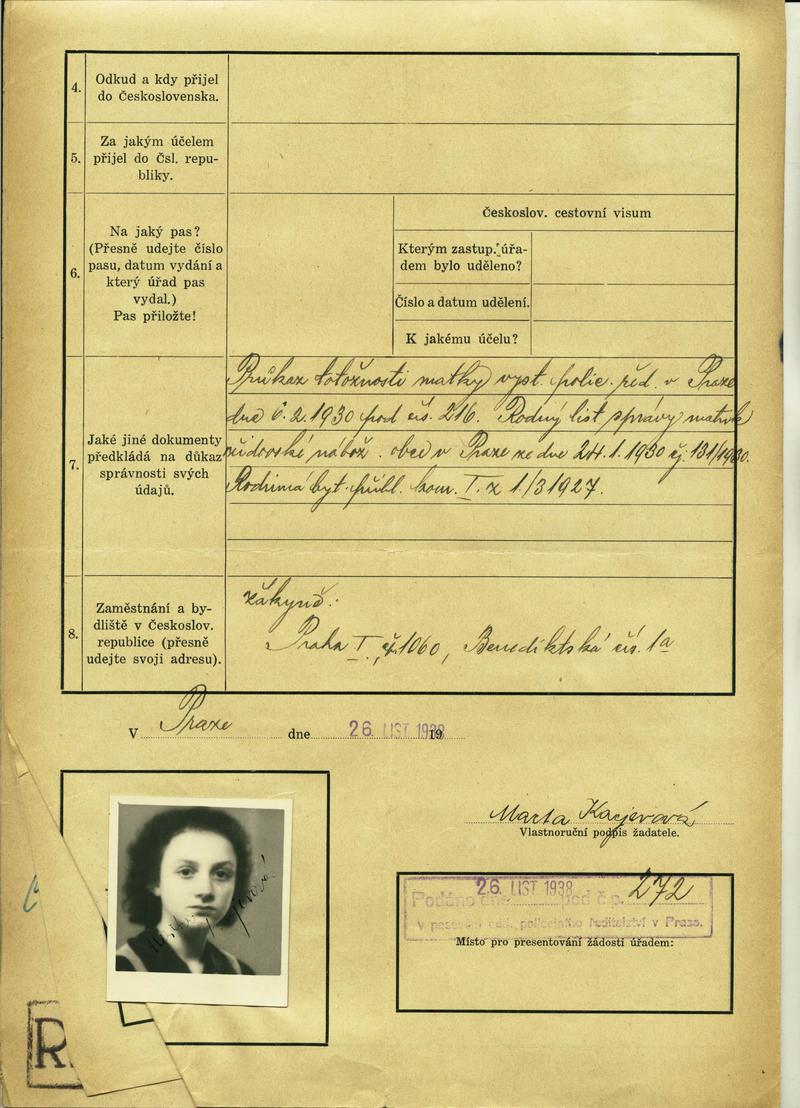 4. Odkud a kdy přijel
do Československa.
5. Za jakým účelem
přijel do Čsl. repu-
bliky.
6. Na jaký pas?
(Přesně udejte číslo
pasu, datum vydání a
který úřad pas
vydal.)
Pas přiložte!
Českoslov. cestovní visum
Kterým zastup. úřa-
dem bylo uděleno?
Číslo a datum udělení.
K jakému účelu?
7. Jaké jiné dokumenty
předkládá na důkaz
správnosti svých
údajů.
Průkaz totožnosti matky vyst. polic. řed. v Praze
dne 6.2.1930 pod čís. 216. Rodný list správy matrik
židovské nábož. obce v Praze ze dne 24.1.1930 čj. 131/1930.
byt. publ. kom. I. z 1./3 1927.
8. Zaměstnání a by-
dliště v Českoslov.
republice (přesně
udejte svoji adresu).
žákyně.
Praha I, č. 1060, Benediktská čís. 1a
V Praze dne 26. LIST 1938 19
Marta Kacjerová
Vlastnoruční podpis žadatele.
26. LIST 1938 272
Podáno dne pod č.p.
v pasovém odd. policejního ředitelství v Praze.
Místo pro presentování žádosti úřadem:
R